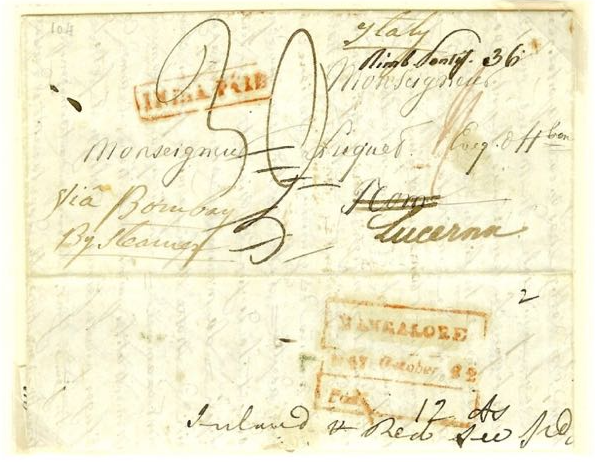 104
Italy
Rimb. Pontif. 36
Monseigneur
INDIA PAID
Monseigneur Luquet. Evêq. d'H
Rome
Via Bombay
Lucerna
By Steamer
2
MANGALORE
October 22
Paid
12 As
Inland & Red Sea